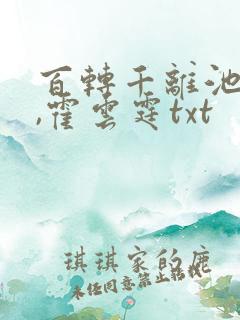 百轉千離池
,霍雲霆txt
琪琪家的鹿
未任同意禁止转载